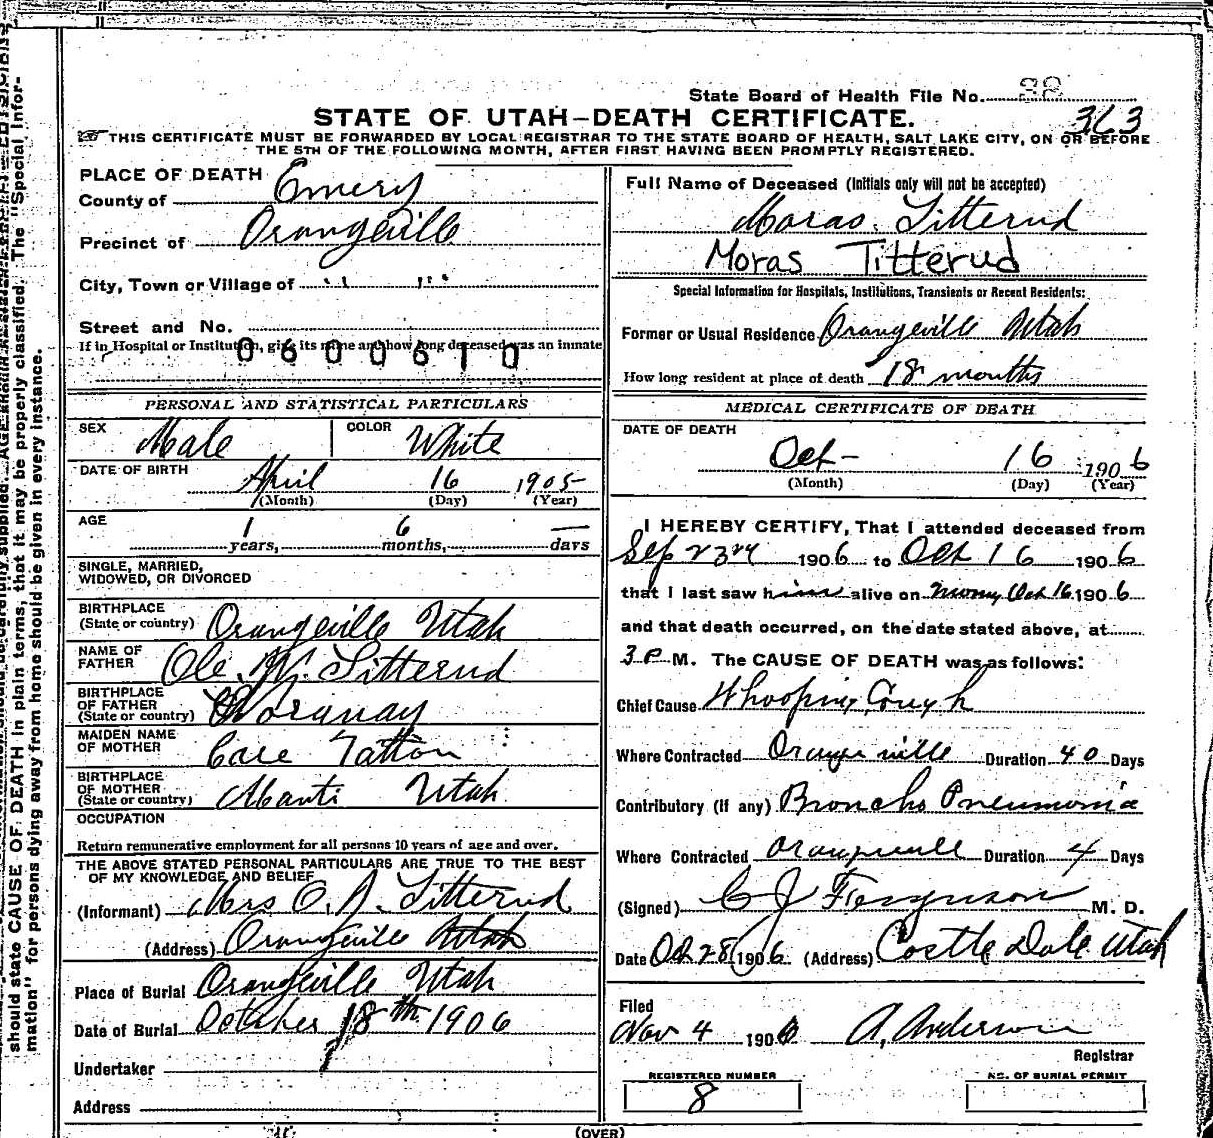 State Board of Health File No. 38
STATE OF UTAH—DEATH CERTIFICATE.
363
THIS CERTIFICATE MUST BE FORWARDED BY LOCAL REGISTRAR TO THE STATE BOARD OF HEALTH, SALT LAKE CITY, ON OR BEFORE
THE 5TH OF THE FOLLOWING MONTH, AFTER FIRST HAVING BEEN PROMPTLY REGISTERED.
PLACE OF DEATH
County of Emery
Precinct of Orangeville
City, Town or Village of " "
Street and No.
If in Hospital or Institution, give its name and how long deceased was an inmate
0600610
PERSONAL AND STATISTICAL PARTICULARS
SEX Male COLOR White
DATE OF BIRTH April 16 1905
(Month) (Day) (Year)
AGE 1 years, 6 months, — days
SINGLE, MARRIED,
WIDOWED, OR DIVORCED
BIRTHPLACE
(State or country) Orangeville Utah
NAME OF
FATHER Ole Litterud
BIRTHPLACE
OF FATHER
(State or country) Norway
MAIDEN NAME
OF MOTHER Tatton
BIRTHPLACE
OF MOTHER
(State or country) Manti Utah
OCCUPATION
Return remunerative employment for all persons 10 years of age and over.
THE ABOVE STATED PERSONAL PARTICULARS ARE TRUE TO THE BEST
OF MY KNOWLEDGE AND BELIEF
(Informant) Mrs O. Litterud
(Address) Orangeville Utah
Place of Burial Orangeville Utah
Date of Burial October 18th 1906
Undertaker
Address
Full Name of Deceased (Initials only will not be accepted)
Moras Litterud
Moras Titterud
Special Information for Hospitals, Institutions, Transients or Recent Residents:
Former or Usual Residence Orangeville Utah
How long resident at place of death 18 months
MEDICAL CERTIFICATE OF DEATH
DATE OF DEATH
Oct - 16 1906
(Month) (Day) (Year)
I HEREBY CERTIFY, That I attended deceased from
Sep 23rd 1906 to Oct 16 1906
that I last saw him alive on Oct 16 1906
and that death occurred, on the date stated above, at
3 P M. The CAUSE OF DEATH was as follows:
Chief Cause Whooping Cough
Where Contracted Orangeville Duration 40 Days
Contributory (If any) Broncho Pneumonia
Where Contracted Orangeville Duration 4 Days
(Signed) C J Ferguson M. D.
Date Oct 28 1906 (Address) Castle Dale Utah
Filed
Nov 4 1906 A. Anderson
Registrar
REGISTERED NUMBER
8
NO. OF BURIAL PERMIT
(OVER)
should state CAUSE OF DEATH in plain terms, that it may be properly classified. The "Special Infor-
mation" for persons dying away from home should be given in every instance.